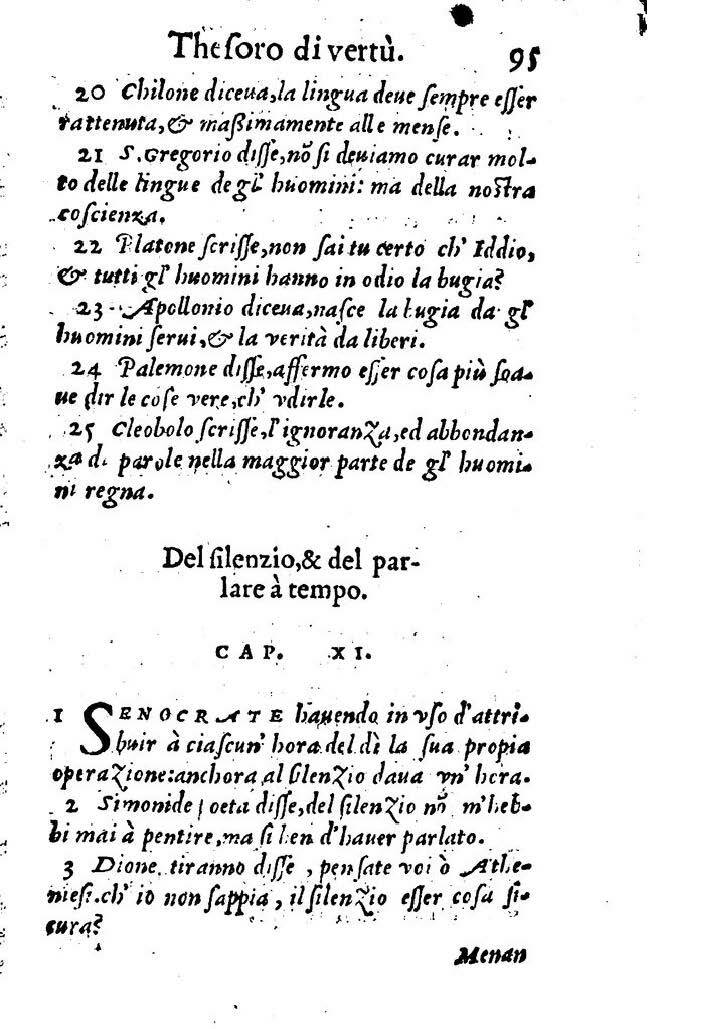 Theſoro di vertù. 95
20 Chilone diceua,la lingua deue ſempre eſſer
rattenuta,& maßimamente alle menſe.
21 S.Gregorio diſſe,nõ ſi deuiamo curar mol-
to delle lingue de gl' huomini: ma della noſtra
coſcienza.
22 Platone ſcriſſe,non ſai tu certo ch' Iddio,
& tutti gl' huomini hanno in odio la bugia?
23 Apollonio diceua,naſce la bugia da gl'
huomini ſerui,& la verità da liberi.
24 Palemone diſſe,affermo eſſer coſa più ſoa-
ue dir le coſe vere,ch' vdirle.
25 Cleobolo ſcriſſe,l'ignoranza,ed abbondan-
za di parole nella maggior parte de gl' huomi-
ni regna.
Del ſilenzio,& del par-
lare à tempo.
CAP. XI.
1 SENOCRATE hauendo in vſo d'attri-
buir à ciaſcun' hora del dì la ſua propia
operazione:anchora al ſilenzio daua vn' hora.
2 Simonide poeta diſſe,del ſilenzio nõ m'heb-
bi mai à pentire,ma ſi ben d'hauer parlato.
3 Dione tiranno diſſe , penſate voi ò Athe-
nieſi.ch' io non ſappia , il ſilenzio eſſer coſa ſi-
cura?
Menan